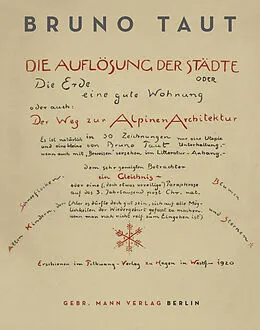 BRUNO TAUT
DIE AUFLÖSUNG DER STÄDTE
ODER
Die Erde
eine gute Wohnung
oder auch:
Der Weg zur Alpinen Architektur
Es ist natürlich in 30 Zeichnungen nur eine Utopie
und eine kleine von Bruno Taut Unterhaltung –
wenn auch mit „Beweisen" versehen im Litteratur-Anhang –
dem sehr geneigten Betrachter
ein Gleichnis –
oder eine (doch etwas voreilige) Paraphrase
auf das 3. Jahrtausend post Chr. nat.
(Aber es dürfte doch gut sein, sich auf alle Mög-
lichkeiten der Wiedergeburt gefasst zu machen,
wenn man noch nicht reif zum Eingehen ist)
Allen Kindern, den
Blumen
und
Erschienen im Folkwang-Verlag zu Hagen in Westf – 1920
GEBR. MANN VERLAG BERLIN